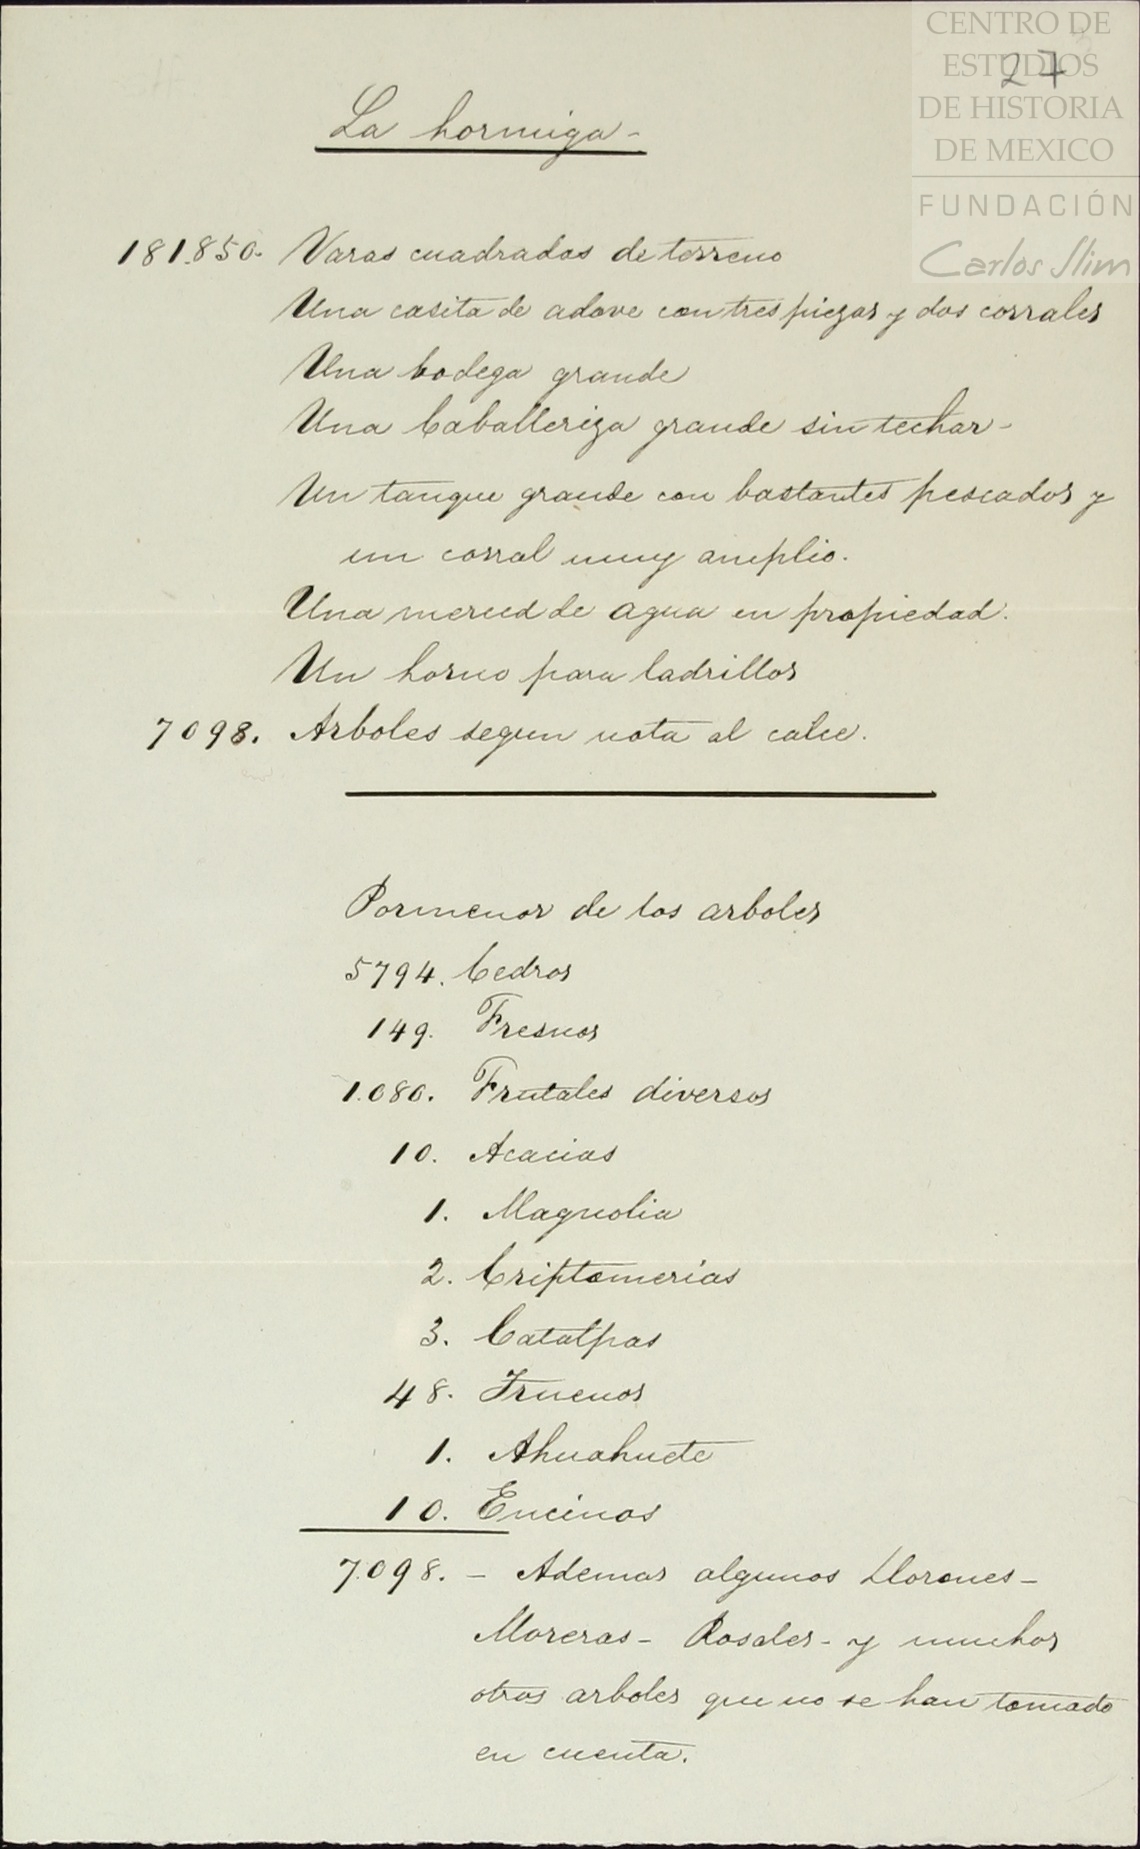 CENTRO DE
ESTUDIOS
DE HISTORIA
DE MEXICO
FUNDACIÓN
Carlos Slim
27
La hormiga-
181.850. Varas cuadradas de terreno
Una casita de adove con tres piezas y dos corrales
Una bodega grande
Una Caballeriza grande sin techar-
Un tanque grande con bastantes pescados y
un corral muy amplio.
Una merced de agua en propiedad.
Un horno para ladrillos
7098. Arboles segun nota al calce.
Pormenor de los arboles
5794. Cedros
149. Fresnos
1.080. Frutales diversos
10. Acacias
1. Magnolia
2. Criptomerias
3. Catalpas
48. Truenos
1. Ahuahuete
10. Encinos
7.098. - Ademas algunos Llorones-
Moreras- Rosales- y muchos
otros arboles que no se han tomado
en cuenta.